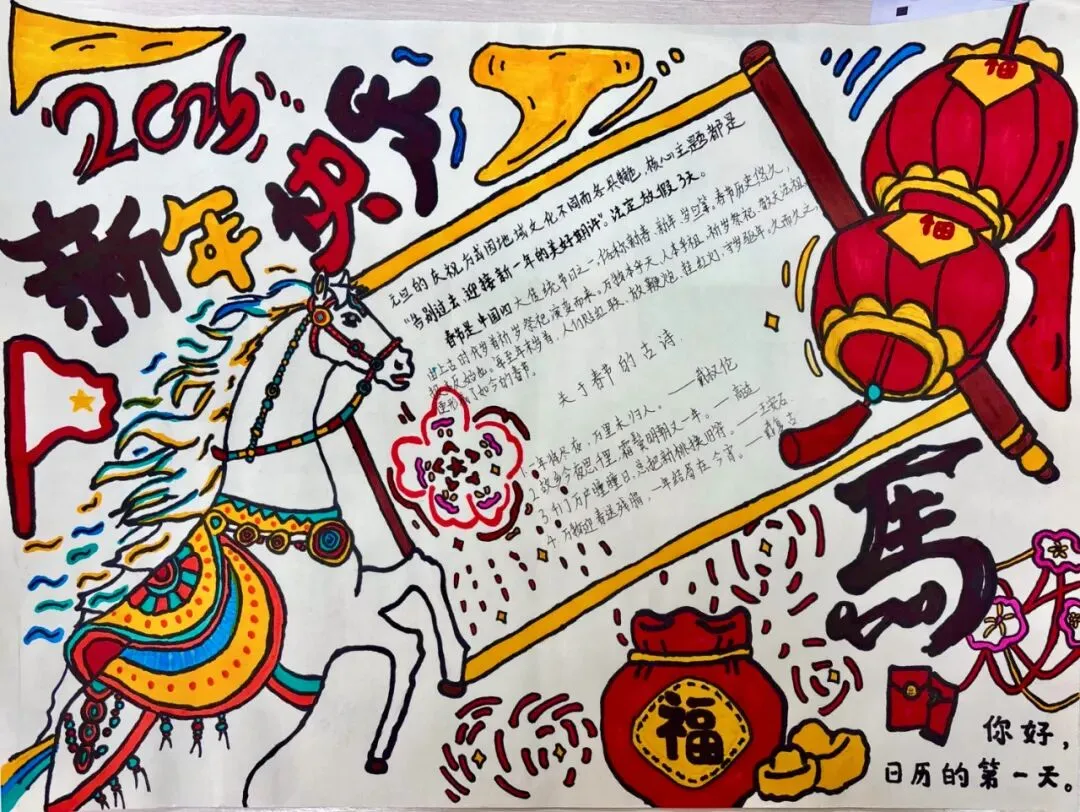 2026
新年快乐
元旦的庆祝方式因地域文化不同而各具特色，核心主题都是
“告别过去，迎接新一年的美好期许”。法定放假3天。
春节是中国四大传统节日之一，俗称新春、新年、岁旦等。春节历史悠久，
由上古时代岁首祈岁祭祀演变而来。万物本乎天，人本乎祖，祈岁祭祀，敬天法祖，
报本反始也。每至年末岁首，人们贴红联、放鞭炮、挂红灯，守岁驱年。久而久之，
便形成了如今的春节。
关于春节的古诗.
1.一年将尽夜，万里未归人。——戴叔伦
2.故乡今夜思千里，霜鬓明朝又一年。——高适
3.千门万户曈曈日，总把新桃换旧符。——王安石
4.万物迎春送残腊，一年结局在今宵。——戴复古
福
福
马
福
你好，
日历的第一天。